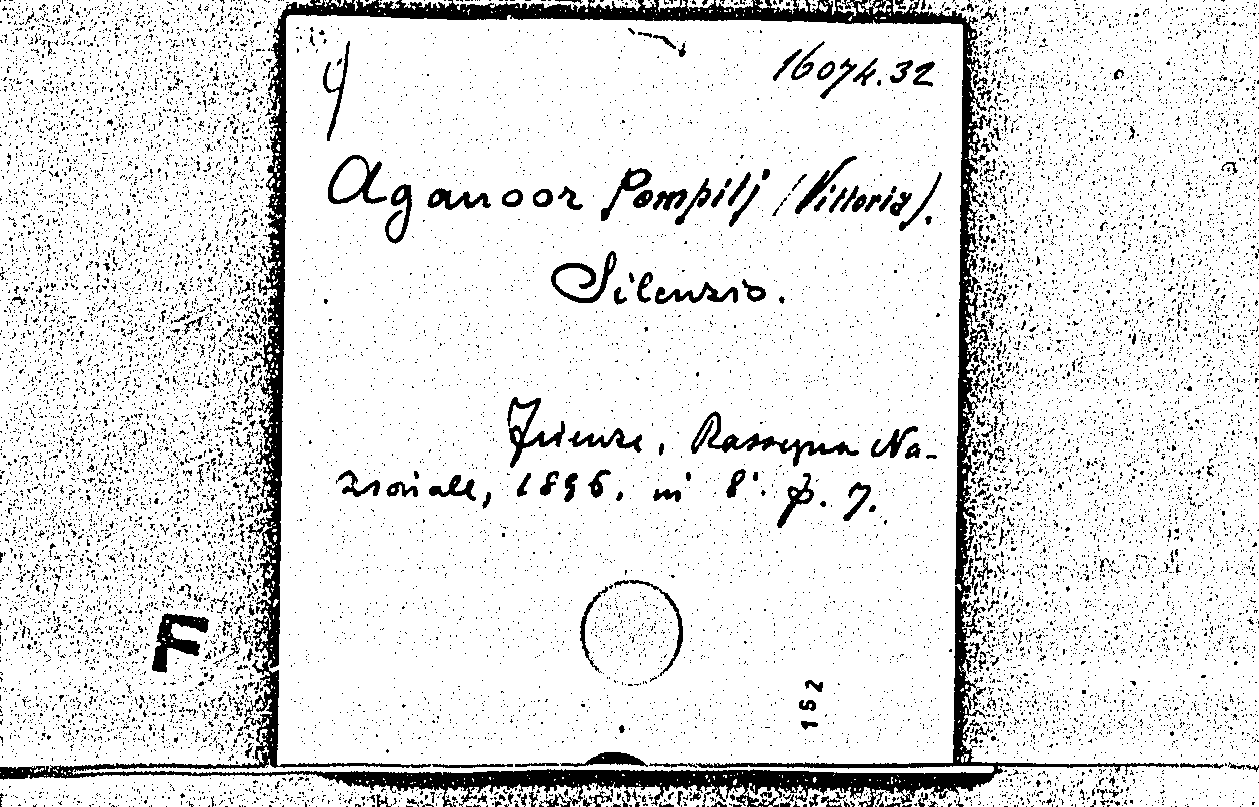 16074.32
Aganoor Pompilj (Vittoria).
Silenzio.
Firenze, Rassegna Na-
zionale, 1896. in 8°. p. 7.
F
152